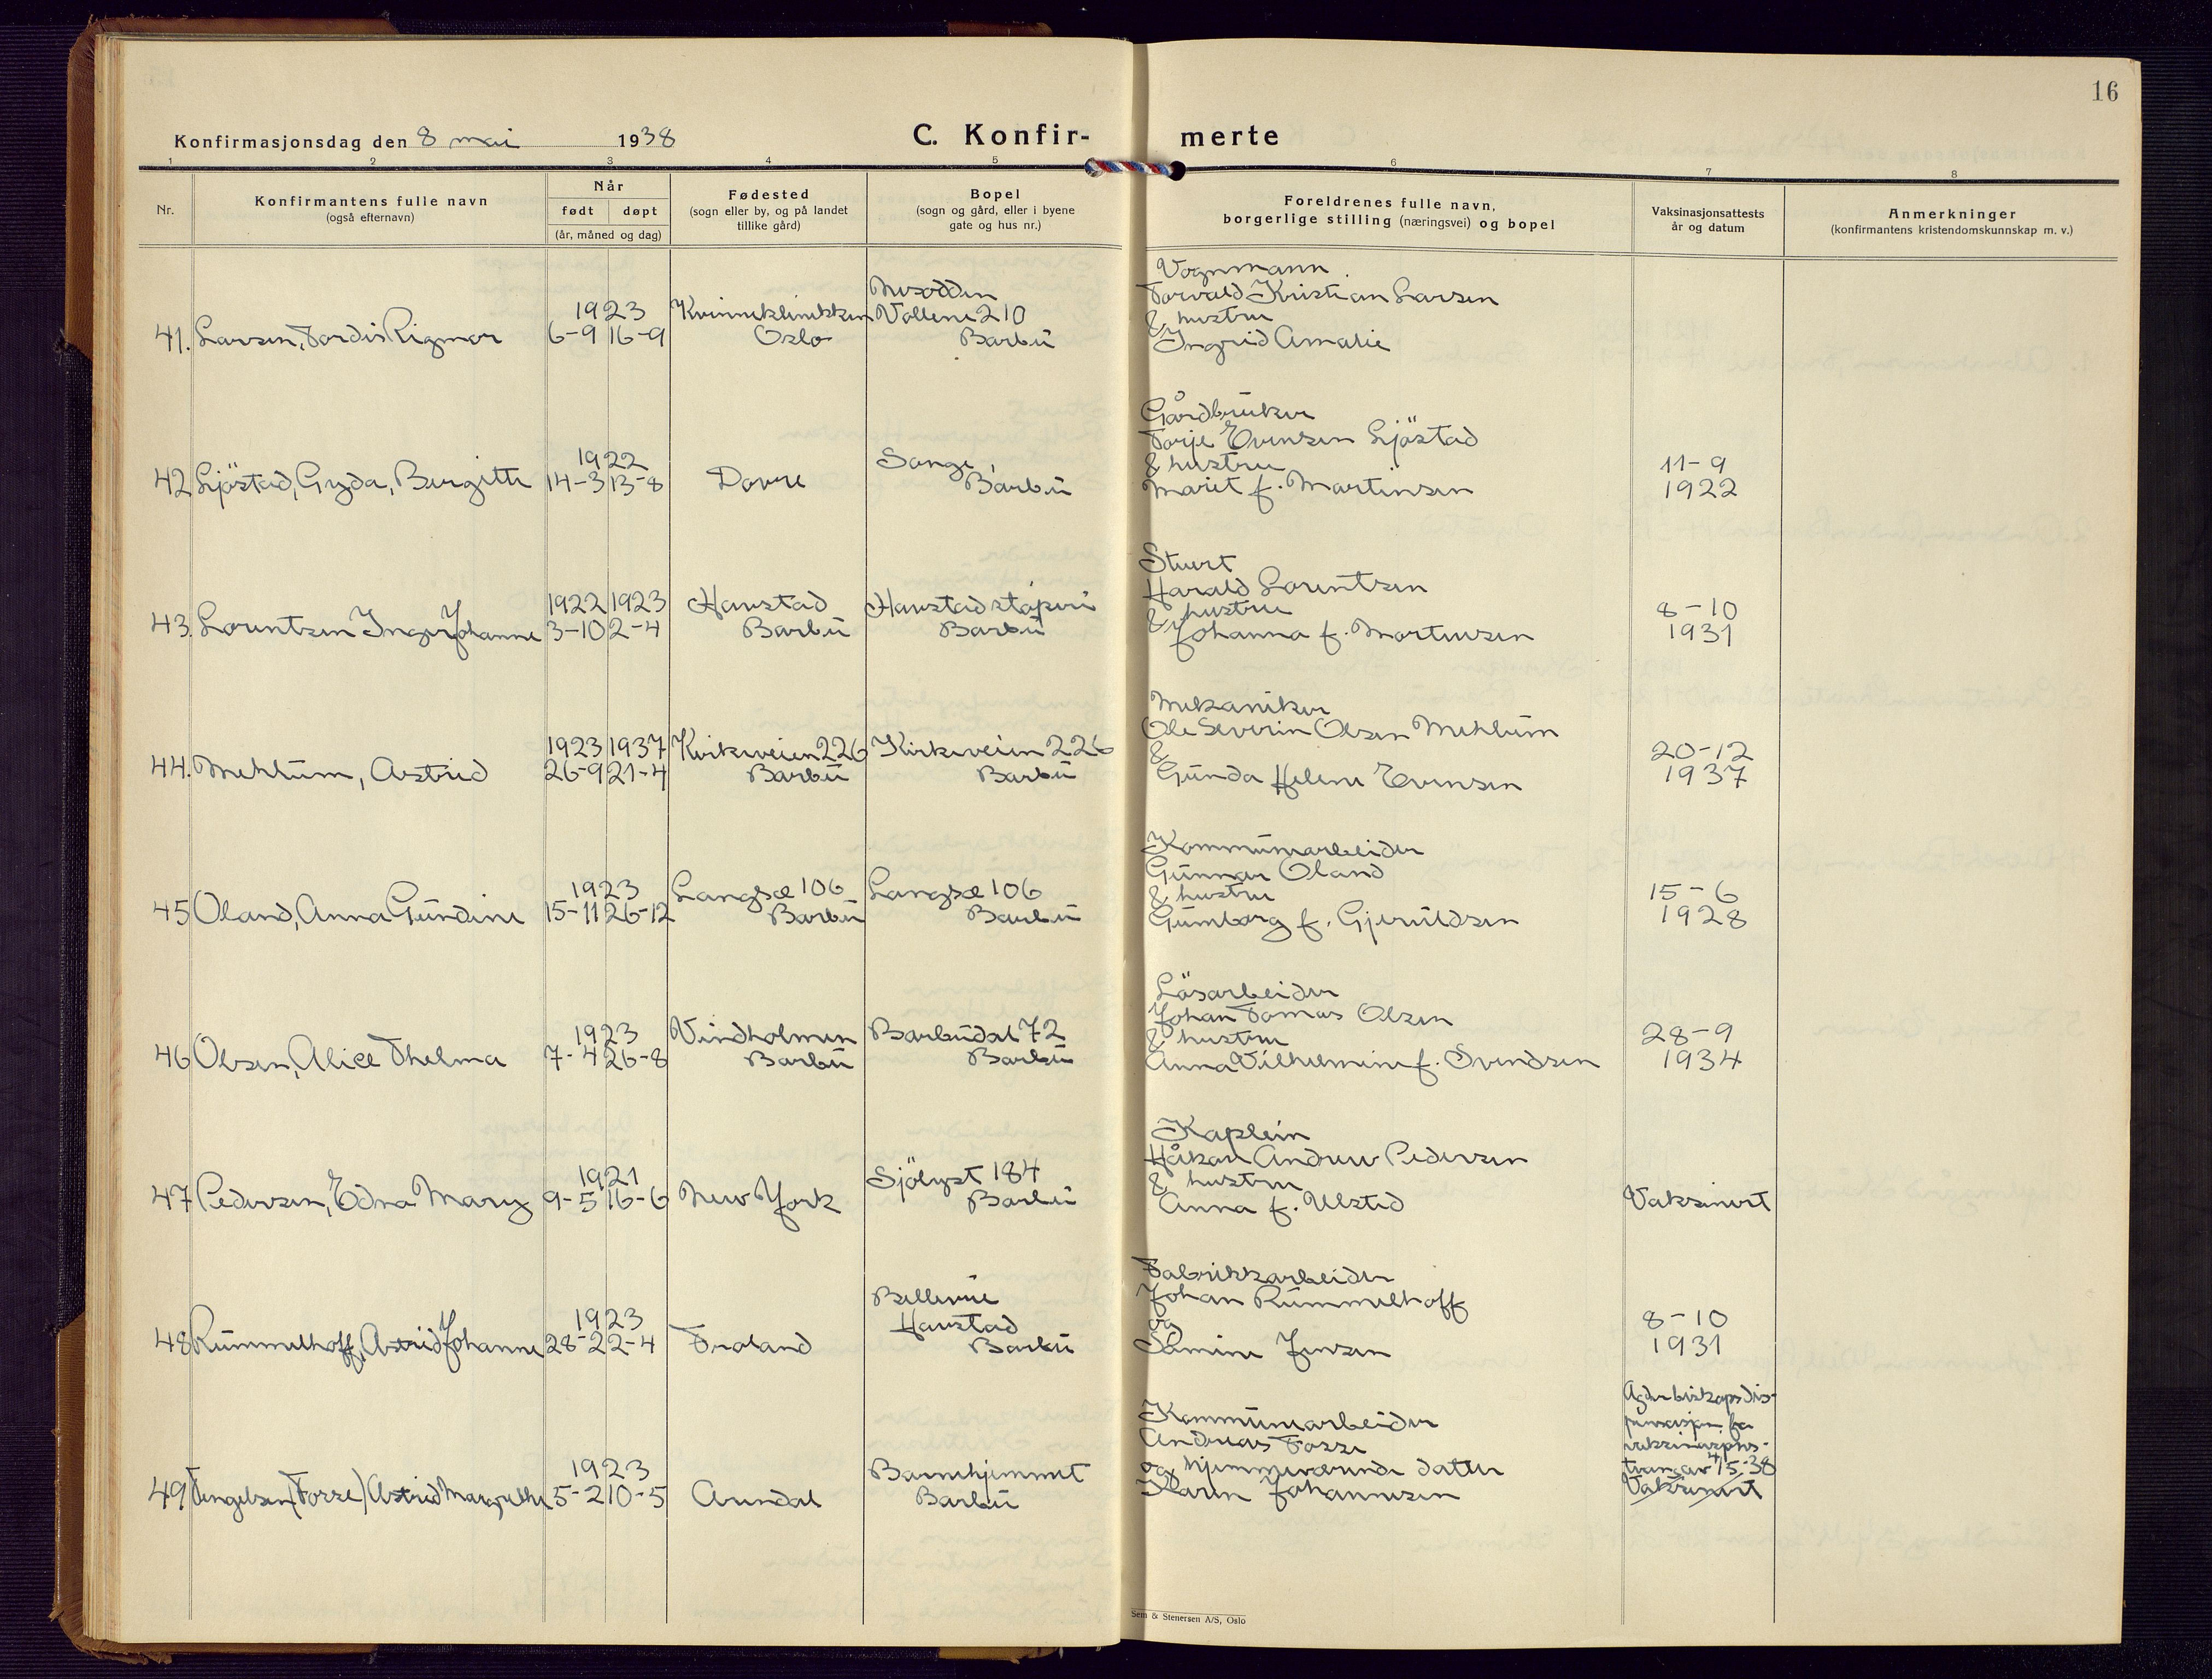 16
Konfirmasjonsdag den 8 mai 1938
C. Konfir- merte
1 2 3 4 5 6 7 8
Nr.
Konfirmantens fulle navn
(også efternavn)
Når
født døpt
(år, måned og dag)
Fødested
(sogn eller by, og på landet
tillike gård)
Bopel
(sogn og gård, eller i byene
gate og hus nr.)
Foreldrenes fulle navn,
borgerlige stilling (næringsvei) og bopel
Vaksinasjonsattests
år og datum
Anmerkninger
(konfirmantens kristendomskunnskap m. v.)
Vognmann
Nesodden
Torvald Kristian Larsen
1923 Kvinneklinikken Vollene 210
& hustru
41. Larsen, Tordis Rigmor 6-9 16-9 Oslo Barbu
Ingrid Amalie
Gårdbruker
Torje Evensen Ljöstad
1922 Songe & hustru 11-9
42 Ljöstad, Gyda, Bergitte 14-3 13-8 Dovre Barbu Marit f. Martinsen 1922
Stuert
Harald Lorentsen
1922 1923 Harstad Harstad støperi & hustru 8-10
43. Lorentsen Inger Johanne 3-10 2-4 Barbu Barbu Johanna f. Mortensen 1931
Mekaniker
Ole Severin Olsen Mehlum
1923 1937 Kirkeveien 226 Kirkeveien 226 & 20-12
44. Mehlum, Astrid 26-9 21-4 Barbu Barbu Gunda Helene Evensen 1937
Kommunearbeider
Gunnar Oland
1923 Langsæ 106 Langsæ 106 & hustru 15-6
45 Oland, Anna Gundine 15-11 26-12 Barbu Barbu Gunborg f. Gjeruldsen 1928
Lösarbeider
Johan Tomas Olsen
1923 Vindholmen Barbudal 72 & hustru 28-9
46 Olsen, Alice Thelma 7-4 26-8 Barbu Barbu Anna Vilhelmine f. Svendsen 1934
Kaptein
Håkon Andrew Pedersen
1921 Sjölyst 184 & hustru
47 Pedersen, Edna Mary 9-5 16-6 New York Barbu Anna f. Ulsted Vaksinert
Fabrikkarbeider
Bellevue Johan Rummelhoff
1923 Harstad og 8-10
48 Rummelhoff, Astrid Johanne 28-2 2-4 Froland Barbu Samine Jensen 1931
Agder biskops dis-
Kommunearbeider pensasjon fra
Andreas Fosse vaksinasjons-
1923 Barnehjemmet og hjemmeværende datter tvang av 4/5-38
49 Tengelsen (Fosse) Astrid Margrethe 5-2 10-5 Arendal Barbu Karen Johannesen Vaksinert
Sem & Stenersen A/S, Oslo